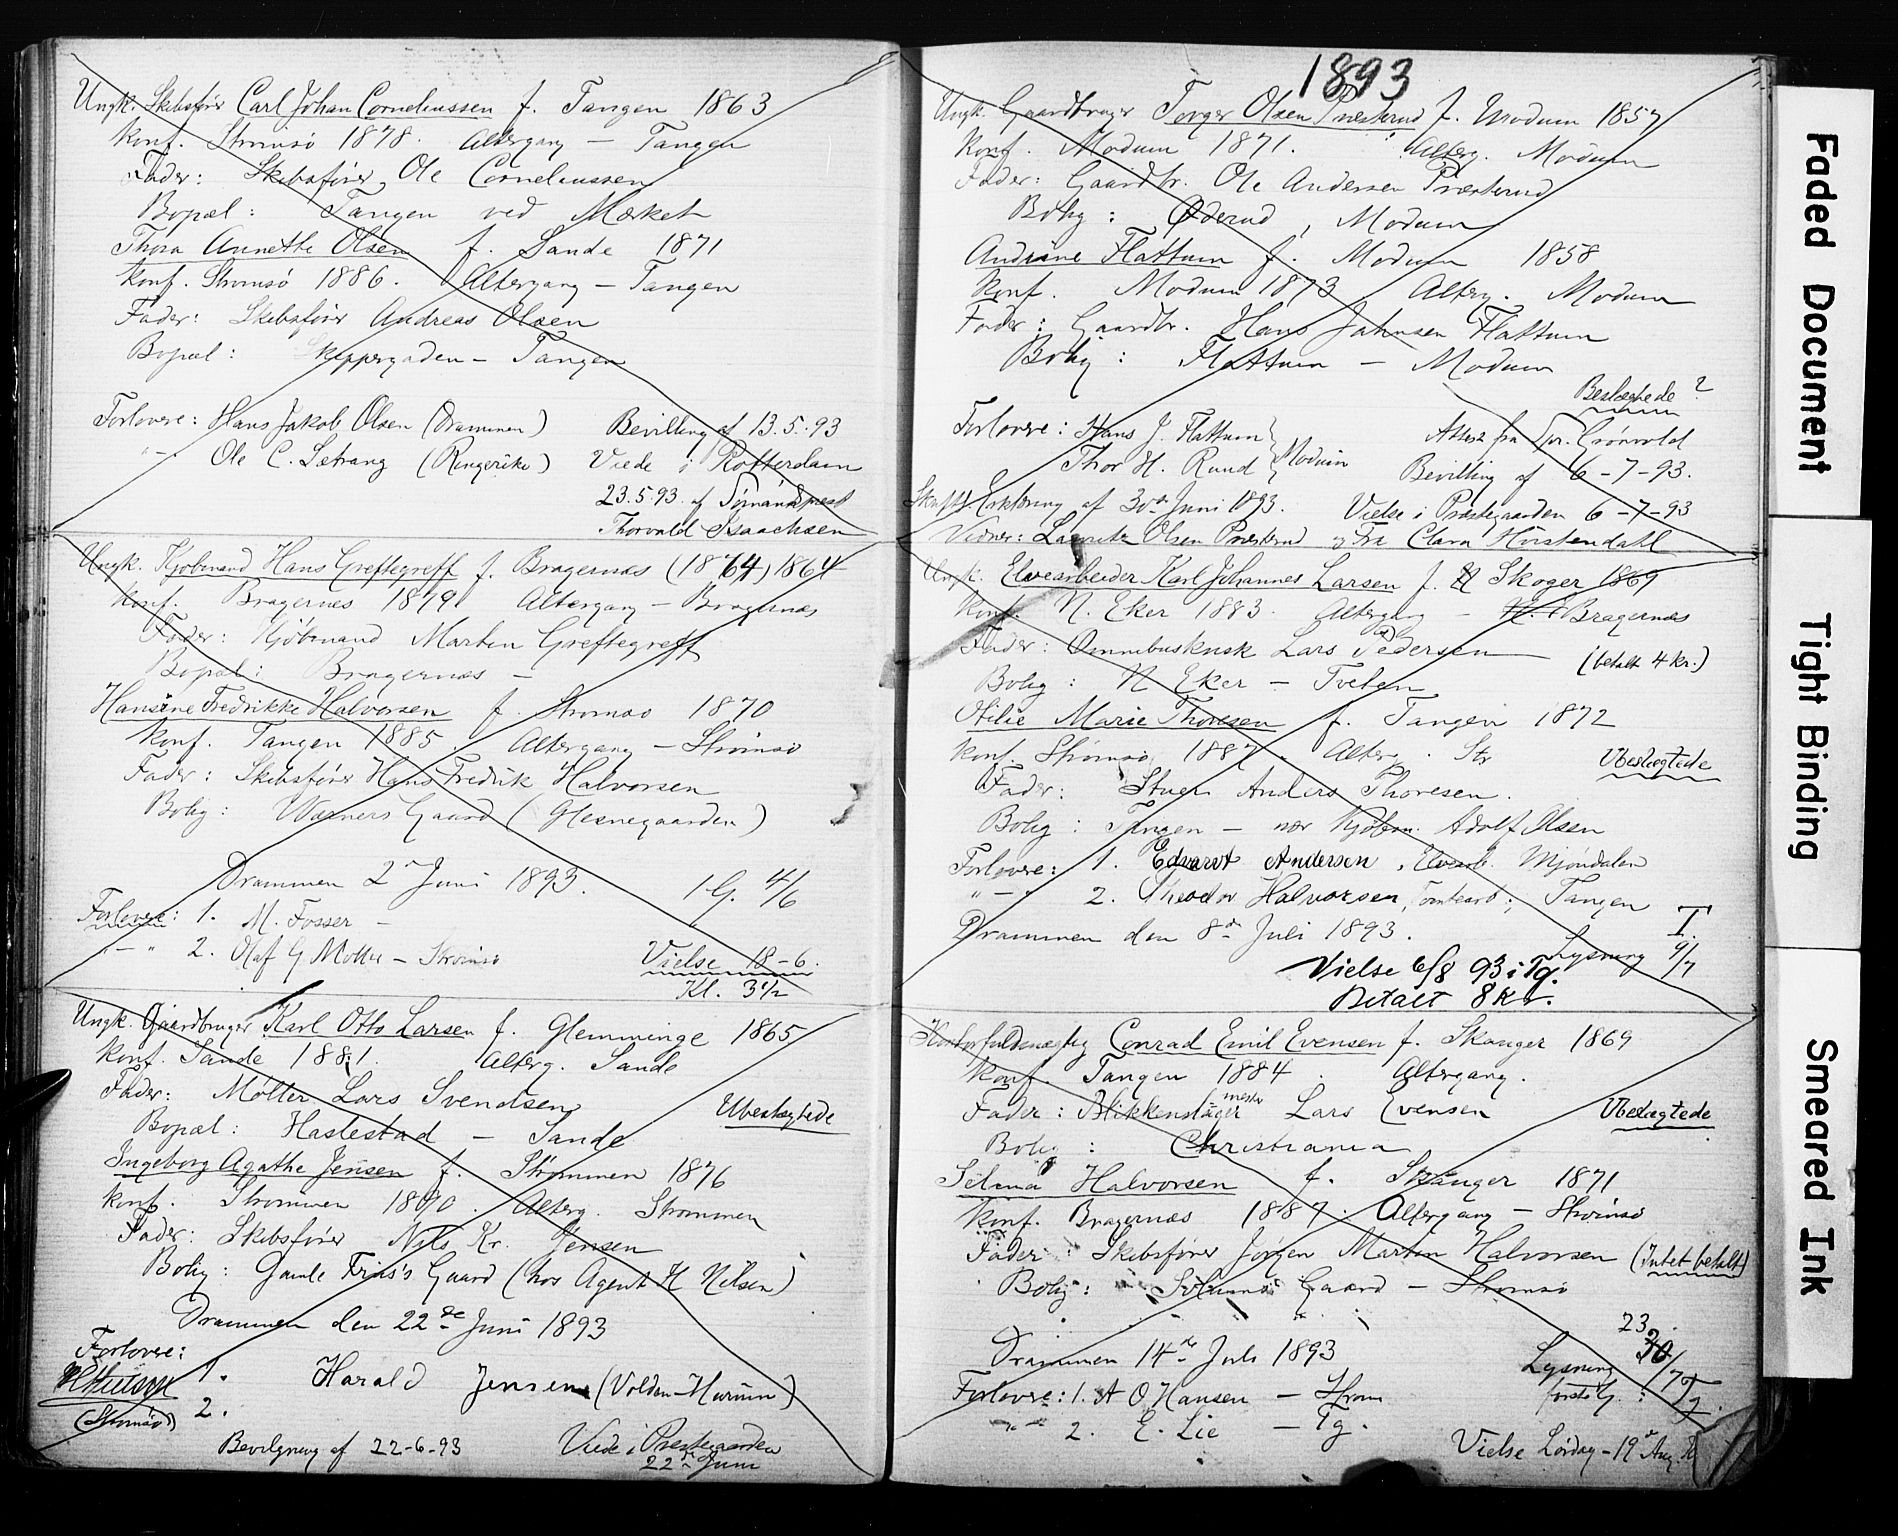 Ungk. Skibsfører Carl Johan Corneliussen f. Tangen 1863
Konf. Strømsø 1878. Altergang – Tangen
Fader: Skibsfører Ole Corneliussen
Bopæl: Tangen ved Mæket
Thora Annette Olsen f. Sande 1871
Konf. Strømsø 1886. Altergang – Tangen
Fader: Skibsfører Andreas Olsen
Bopæl: Skippergaden – Tangen
Forlovere: Hans Jakob Olsen (Drammen) Bevilling af 13.5.93
" – Ole C. Setrang (Ringerike) Viede i Rotterdam
23.5.93. af Sømandsprest
Thorvald Isaachsen
Ungk. Kjøbmand Hans Greftegreff f. Bragernæs (1864) 1864
Konf. Bragernæs 1879 Altergang – Bragernæs
Fader: Kjøbmand Martin Greftegreff
Bopæl: Bragernæs –
Hansine Fredrikke Halvorsen f. Strømsø 1870
Konf. Tangen 1885. Altergang – Strømsø
Fader: Skibsfører Hans Fredrik Halvorsen
Bolig: Warners Gaard (Glesnegaarden)
Drammen 2n Juni 1893. 1 G. 4/6
Forlovere: 1. M. Fosser –
" – " 2. Olaf G. – Strømsø Vielse 18–6.
Kl. 3 1/2
Ungk. Gaardbruger Karl Otto Larsen f. Glemminge 1865
Konf. Sande 1881. Alterg. Sande
Fader: Møller Lars Svendsen Ubeslægtede
Bopæl: Haslestad – Sande
Ingeborg Agathe Jensen f. Strømmen 1876
Konf. Strømmen 1890. Alterg. Strømmen
Fader: Skibsfører Nils Kr. Jensen
Bolig: Gamle Gaard (hos Agent H Nilsen)
Drammen den 22de Juni 1893
Forlovere:
1. Harald Jensen (Volden – Hurum)
(Strømsø) 2.
Bevilgning af 22-6-93 Viede i Præstegaarden
22de Juni
1893
Ungk. Gaardbruger Torger Olsen Præsterud f. Modum 1857
Konf. Modum 1871. Alterg. Modum
Fader: Gaardbr. Ole Andersen Præsterud
Bolig: Øderud, Modum
Andrine Flattum f. Modum 1858
Konf. Modum 1873 Alterg. Modum
Fader: Gaardbr. Hans Jahnsen Flattum
Bolig: Flattum – Modum
Beslægtede?
Forlovere: Hans J. Flattum Attest fra Spr. Grönvold
Thor H. Rund } Modum Bevilling af 6-7-93.
Skriftl. Erklæring af 30te Juni 1893. Vielse i Præstegaarden 6-7-93
Vidner: Lauritz Olsen Præsterud og Frk Clara Hvistendahl
Ungk. Elvearbeider Karl Johannes Larsen f. Skoger 1869
Konf. N. Eker 1883. Altergang – Bragernæs
Fader: Omnibuskusk Lars Pedersen (betalt 4 kr.)
Bolig: N Eker – Tveten
Otilie Marie Thoresen f. Tangen 1872
Konf. Strømsø 1887. Alterg. Str Ubeslægtede
Fader: Stuer Anders Thoresen.
Bolig: Tangen – nær Kjøbm. Adolf Olsen
Forlovere: 1. Edvart Andersen, Elvearb. Mjöndalen
" – " 2. Theodor Halvorsen, Tomtearb.; Tangen
Drammen den 8de Juli 1893. I.
Lysning 9/7
Vielse 6/8 93 i Tg.
Betalt 8 Kr.
Conrad Emil Evensen f. Skouger 1869
Konf. Tangen 1884. Altergang.
Fader: Blikkenslagermester Lars Evensen Ubeslægtede
Bolig: Christiania
Selma Halvorsen f. Skouger 1871
Konf. Bragernæs 1887. Altergang – Strømsø
Fader: Skibsfører Jørgen Martin Halvorsen (Intet betalt)
Bolig: Gaard – Strømsø
23.
Drammen 14de Juli 1893 Lysning 30/7
Forlovere: 1. A O Hansen – Strøm første G.:
" " 2. E. Lie – Tg. Vielse Lördag – 19de Aug.
Faded Document
Tight Binding
Smeared Ink